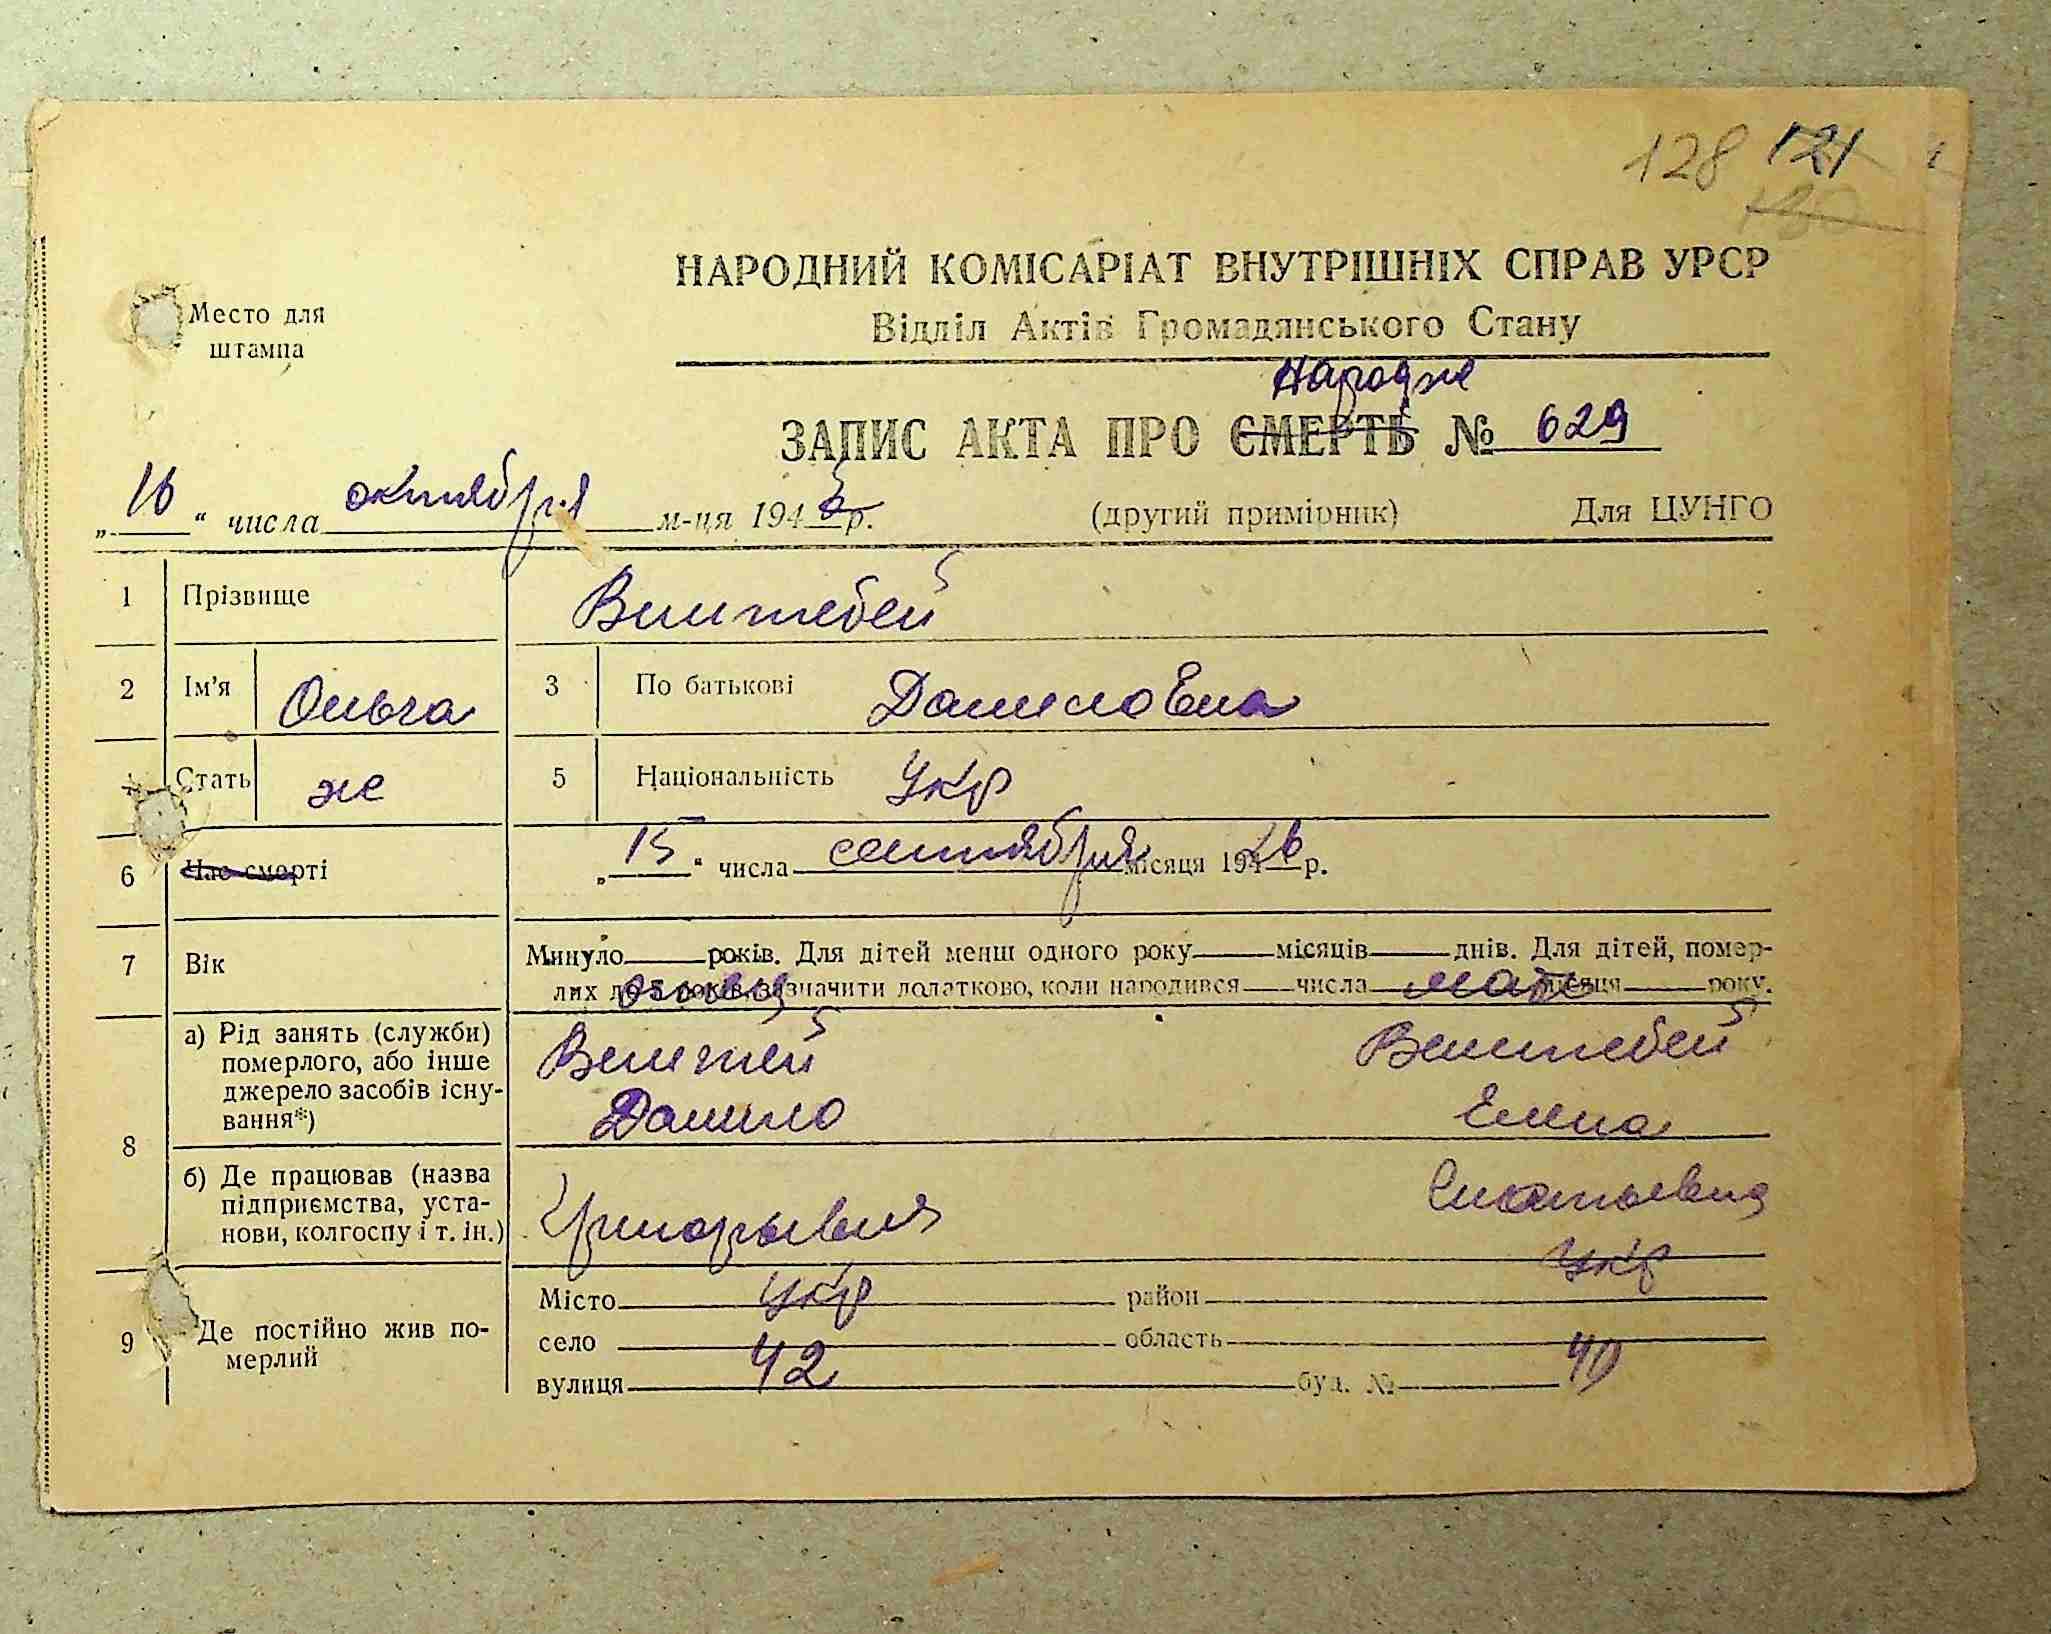 128 121
Место для
штампа
НАРОДНИЙ КОМІСАРІАТ ВНУТРІШНІХ СПРАВ УРСР
Відділ Актів Громадянського Стану
Народже
ЗАПИС АКТА ПРО СМЕРТЬ № 629
„16“ числа октября м-ця 1945 р. (другий примірник) Для ЦУНГО
1 Прізвище
2 Ім'я Ольга 3 По батькові Даниловна
4 Стать же 5 Національність Укр
6 Час смерті „15“ числа сентября місяця 1926 р.
7 Вік Минуло років. Для дітей менш одного року місяців днів. Для дітей, помер-
лих до 5 років, зазначити додатково, коли народився числа місяця року.
отец мать
8 а) Рід занять (служби)
померлого, або інше
джерело засобів існу-
вання*)
Данило Елена
б) Де працював (назва
підприємства, уста-
нови, колгоспу і т. ін.)
Укр
9 Де постійно жив по-
мерлий
Місто Укр район
село область
вулиця 42 буд. № 40